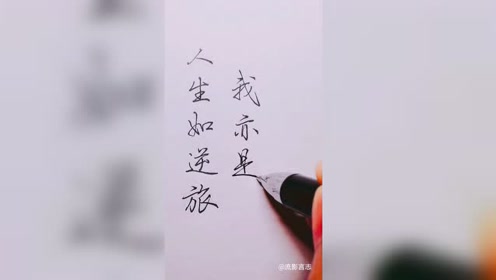 人生如逆旅
我亦是